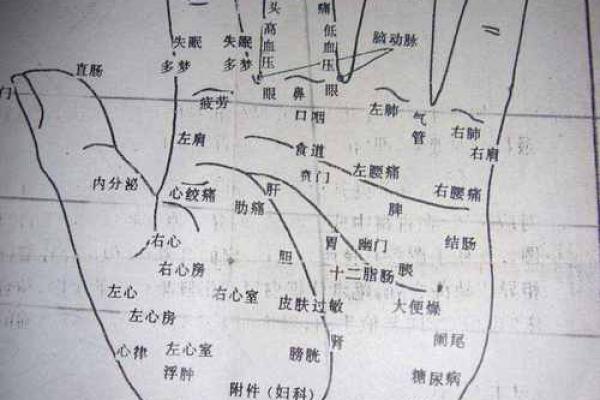 头
痛
高血压
低血压
脑动脉
失眠
多梦
失眠
多梦
直肠
门
疲劳
眼
鼻
眼
口咽
左肺
气管
右肺
左肩
食道
贲门
左腰痛
右肩
内分泌
心绞痛
肝
肋痛
脾
右腰痛
右心
右心房
胆
胃
幽门
结肠
十二脂肠
胰
左心
右心室
皮肤过敏
大便燥
左心房
心律
左心室
浮肿
膀胱
肾
阑尾
糖尿病
附件(妇科)